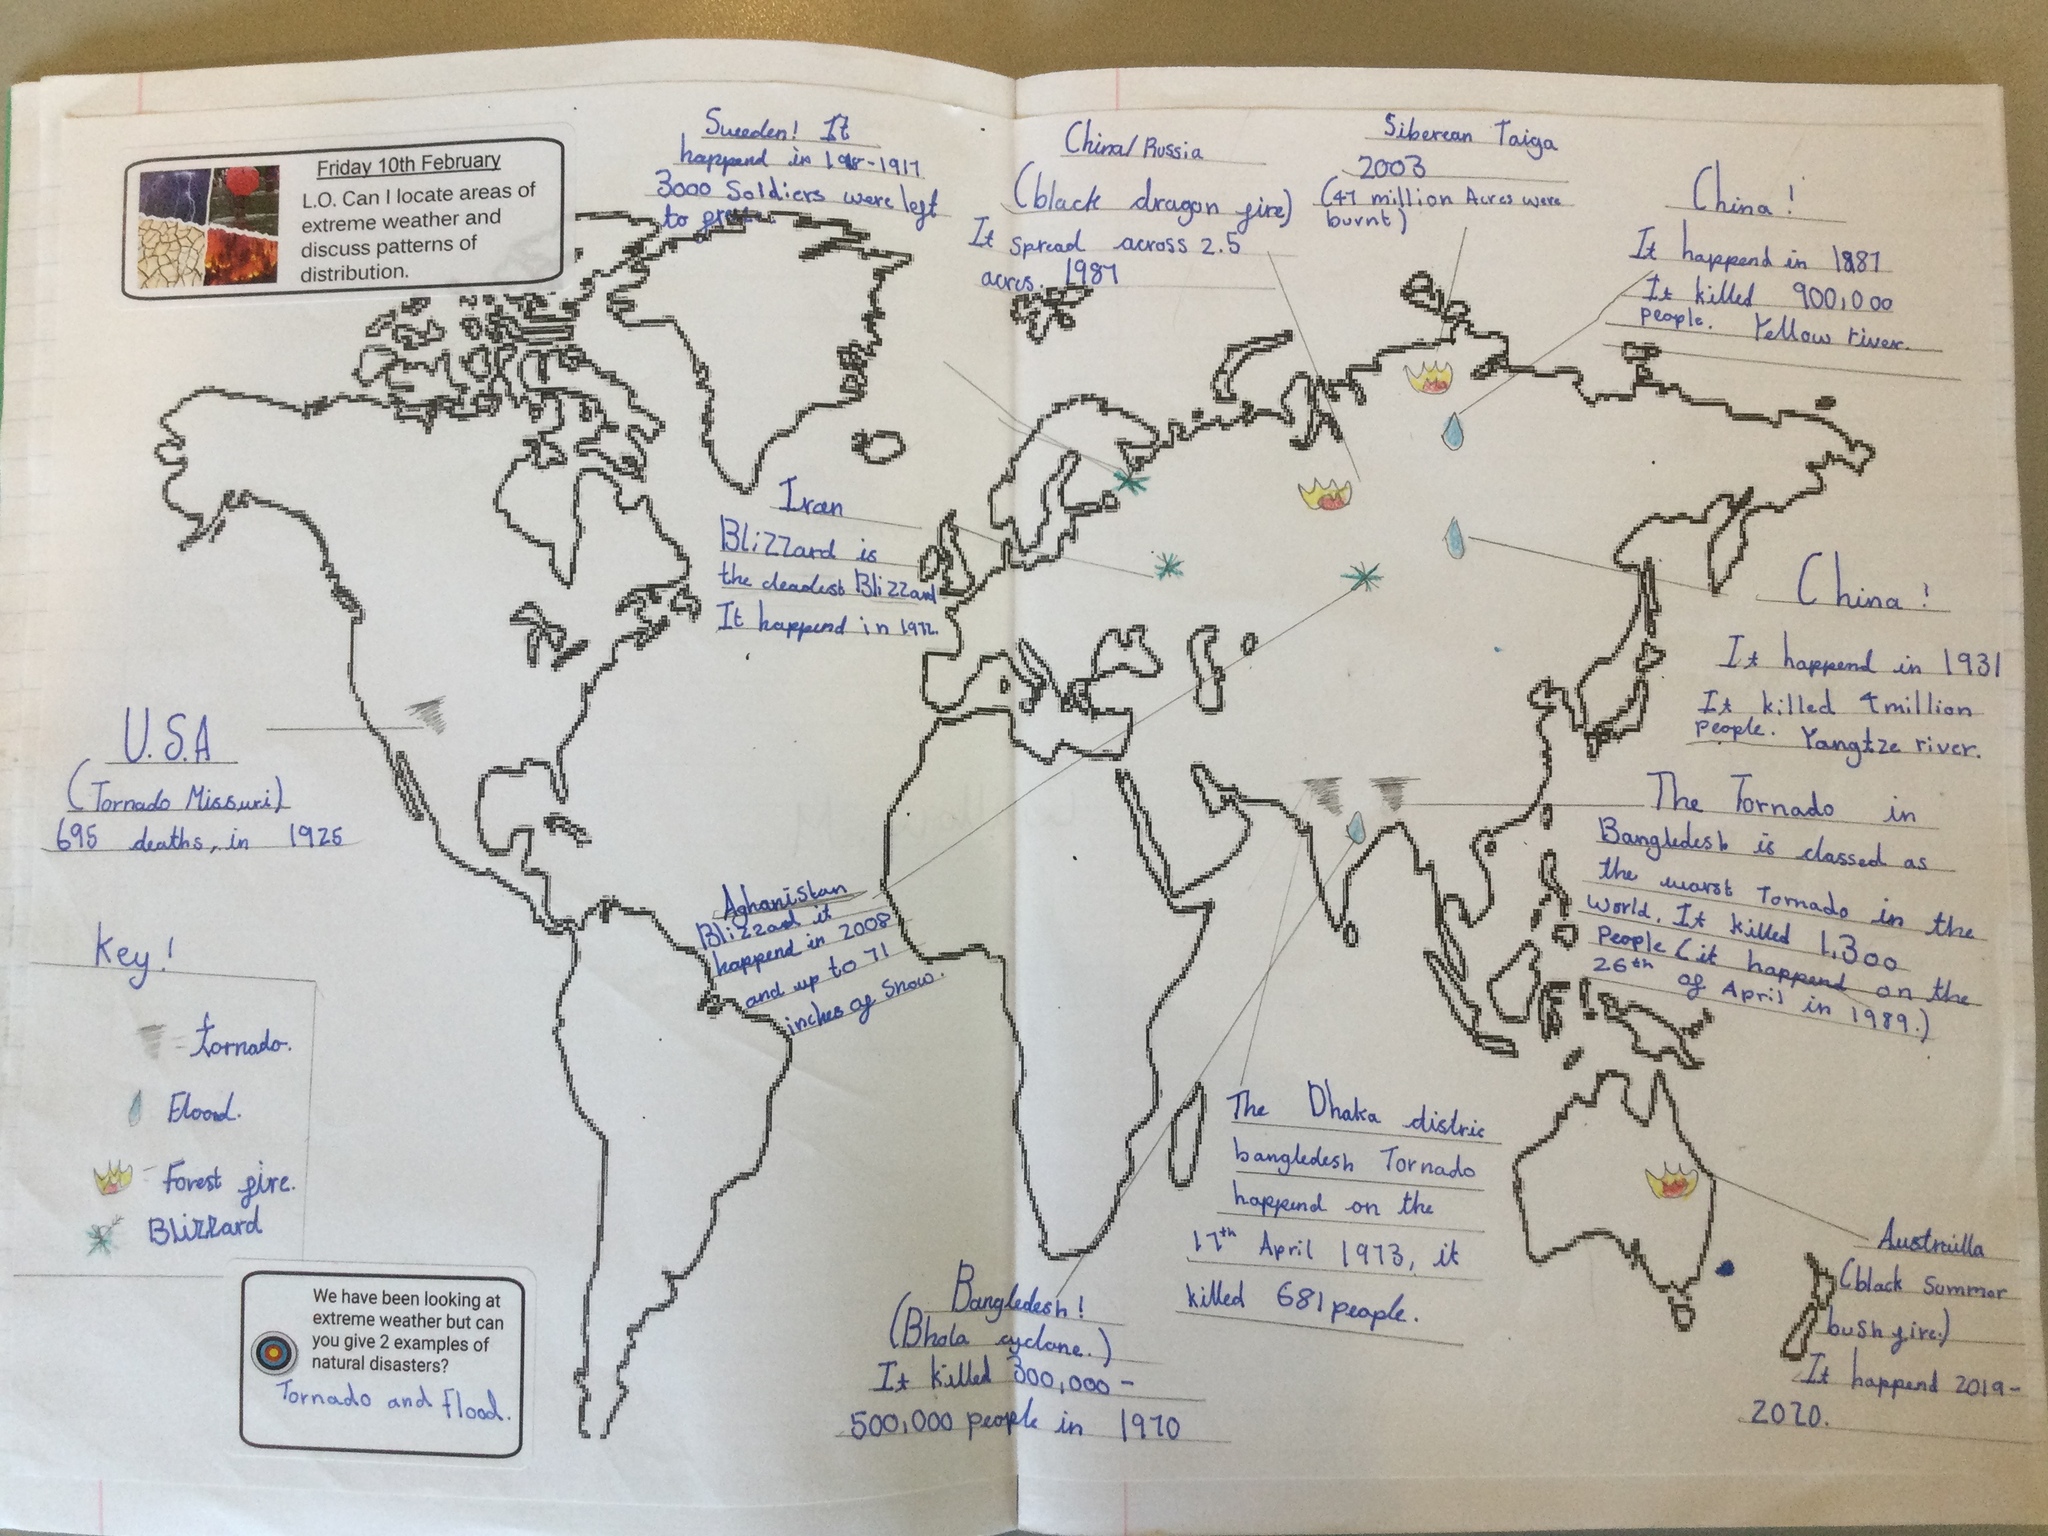 Friday 10th February
L.O. Can I locate areas of
extreme weather and
discuss patterns of
distribution.
Sweeden! It
happend in 1918-1917
3000 Soldiers were left
to
China/Russia
(black dragon fire)
It spread across 2.5
acres. 1987
Siberean Taiga
2003
(47 million Acres were
burnt)
China!
It happend in 1887
It killed 900,000
people. Yellow river.
Iran
Blizzard is
the deadest Blizzard
It happend in 1972.
China!
It happend in 1931
It killed 4 million
people. Yangtze river.
U.S.A
(Tornado Missuri)
695 deaths, in 1925
The Tornado in
Bangledesh is classed as
the warst Tornado in the
world. It killed 1,300
People (it happend on the
26th of April in 1989.)
Aghanistan
Blizzard it
happend in 2008
and up to 71
inches of Snow.
Key!
= tornado.
Flood.
- Forest fire.
Blizzard
The Dhaka distric
bangledesh Tornado
happend on the
17th April 1973, it
killed 681 people.
Bangledesh!
(Bhola cyclone.)
It killed 300,000-
500,000 people in 1970
Austrailla
(black summer
bush fire.)
It happend 2019-
2020.
We have been looking at
extreme weather but can
you give 2 examples of
natural disasters?
Tornado and flood.